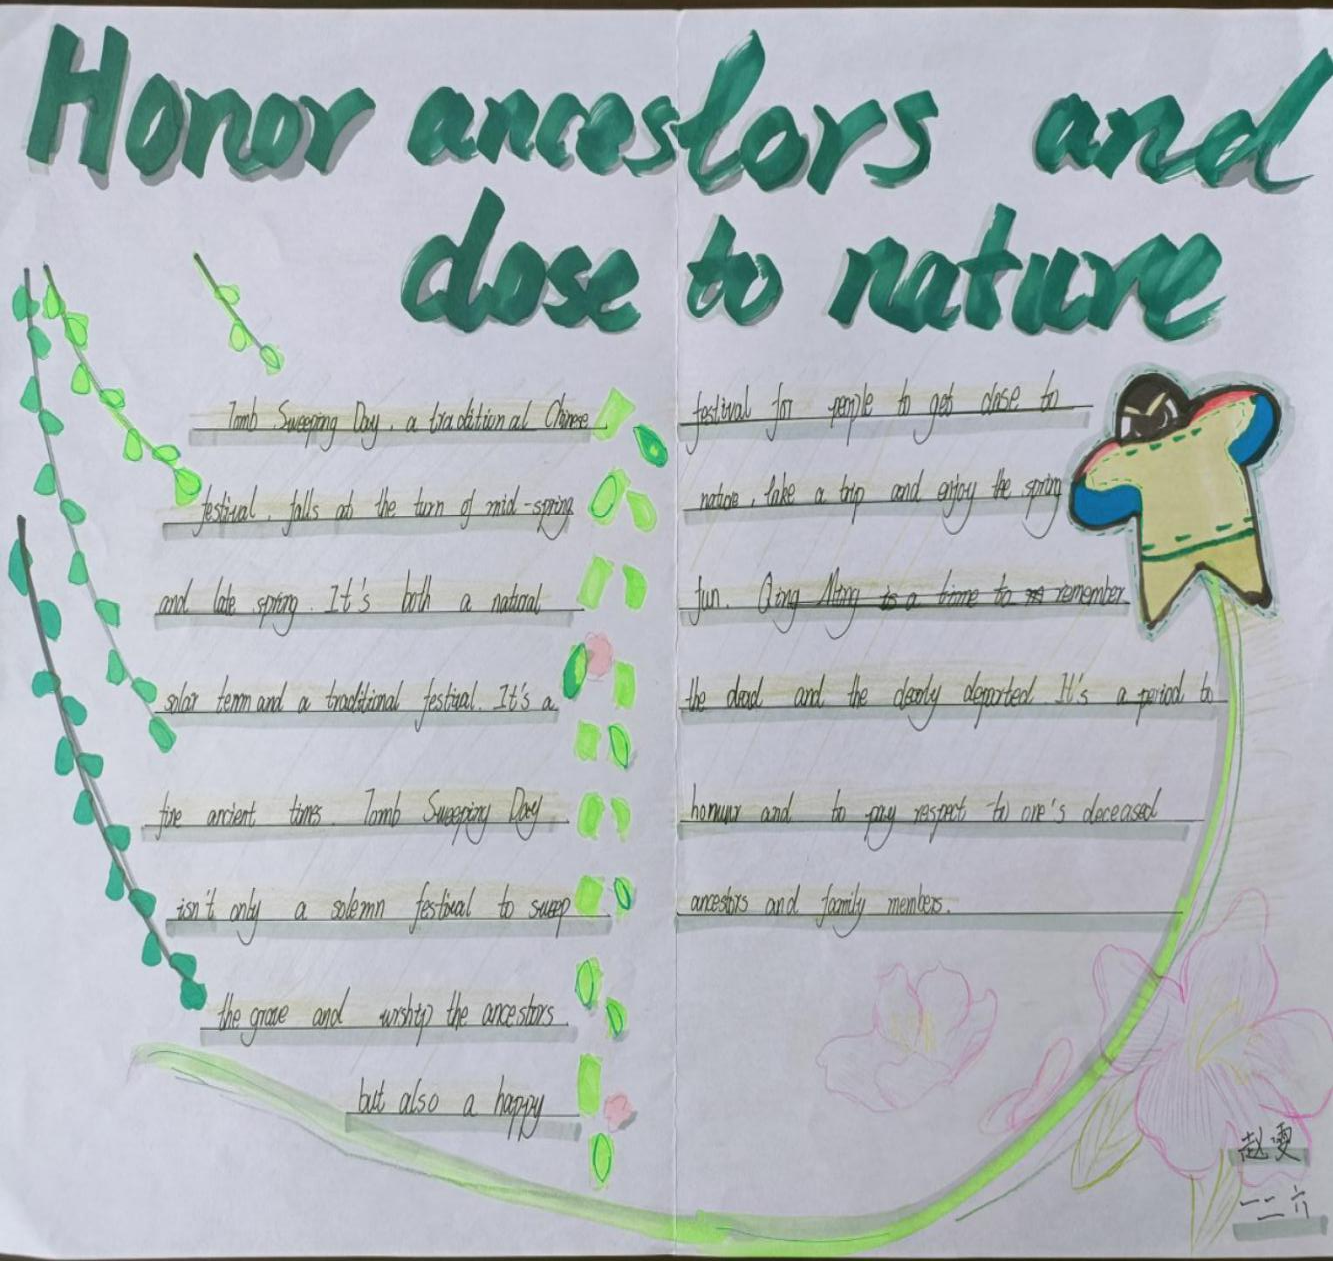 Honor ancestors and
close to nature
Tomb Sweeping Day, a traditional Chinese
festival, falls at the turn of mid-spring
and late spring. It's both a natural
solar term and a traditional festival. It's a
fine ancient times. Tomb Sweeping Day
isn't only a solemn festival to sweep
the grave and wrship the ancestors
but also a happy
festival for people to get close to
nature, take a trip and enjoy the spring
fun. Qing Ming is a time to remember
the dead and the dearly departed. It's a period to
honour and to pay respect to one's deceased
ancestors and family members.
赵雯
一二六